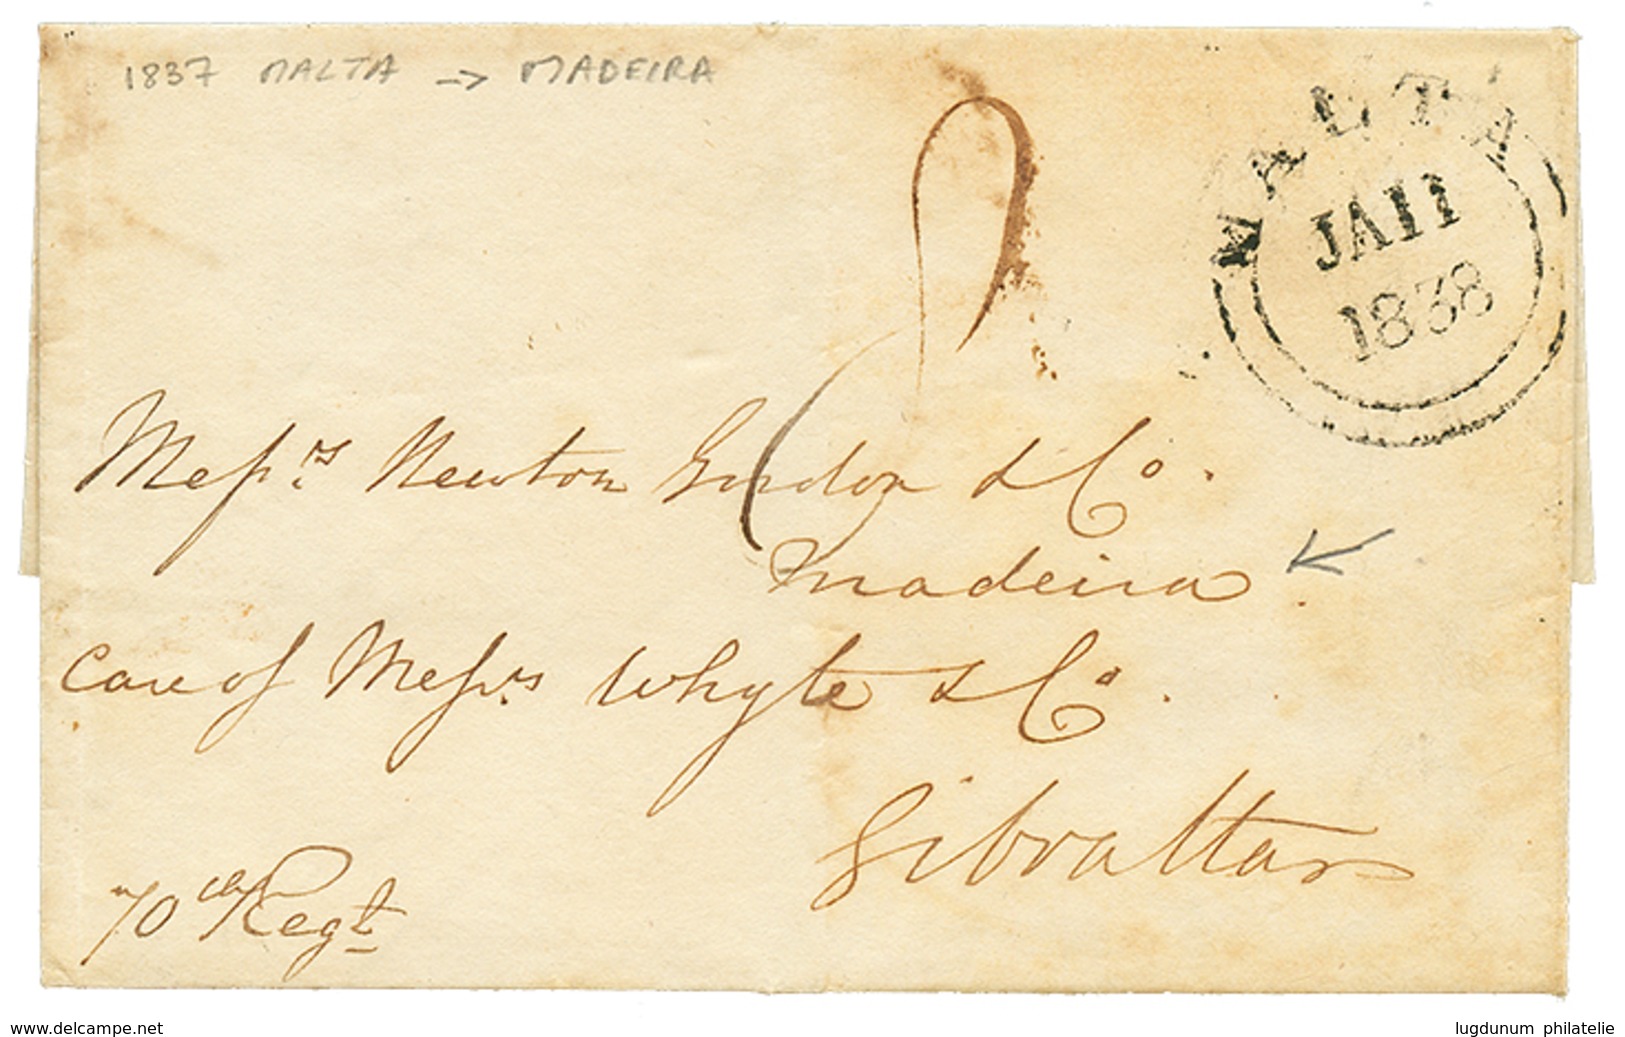 1837 MALTA -> MADEIRA
MALTA
JA 11
1838
Mess.rs Newton Gordon & Co.
Madeira
Care of Messrs Whyte & Co.
Gibraltar
70th Regt
www.delcampe.net
lugdunum philatelie